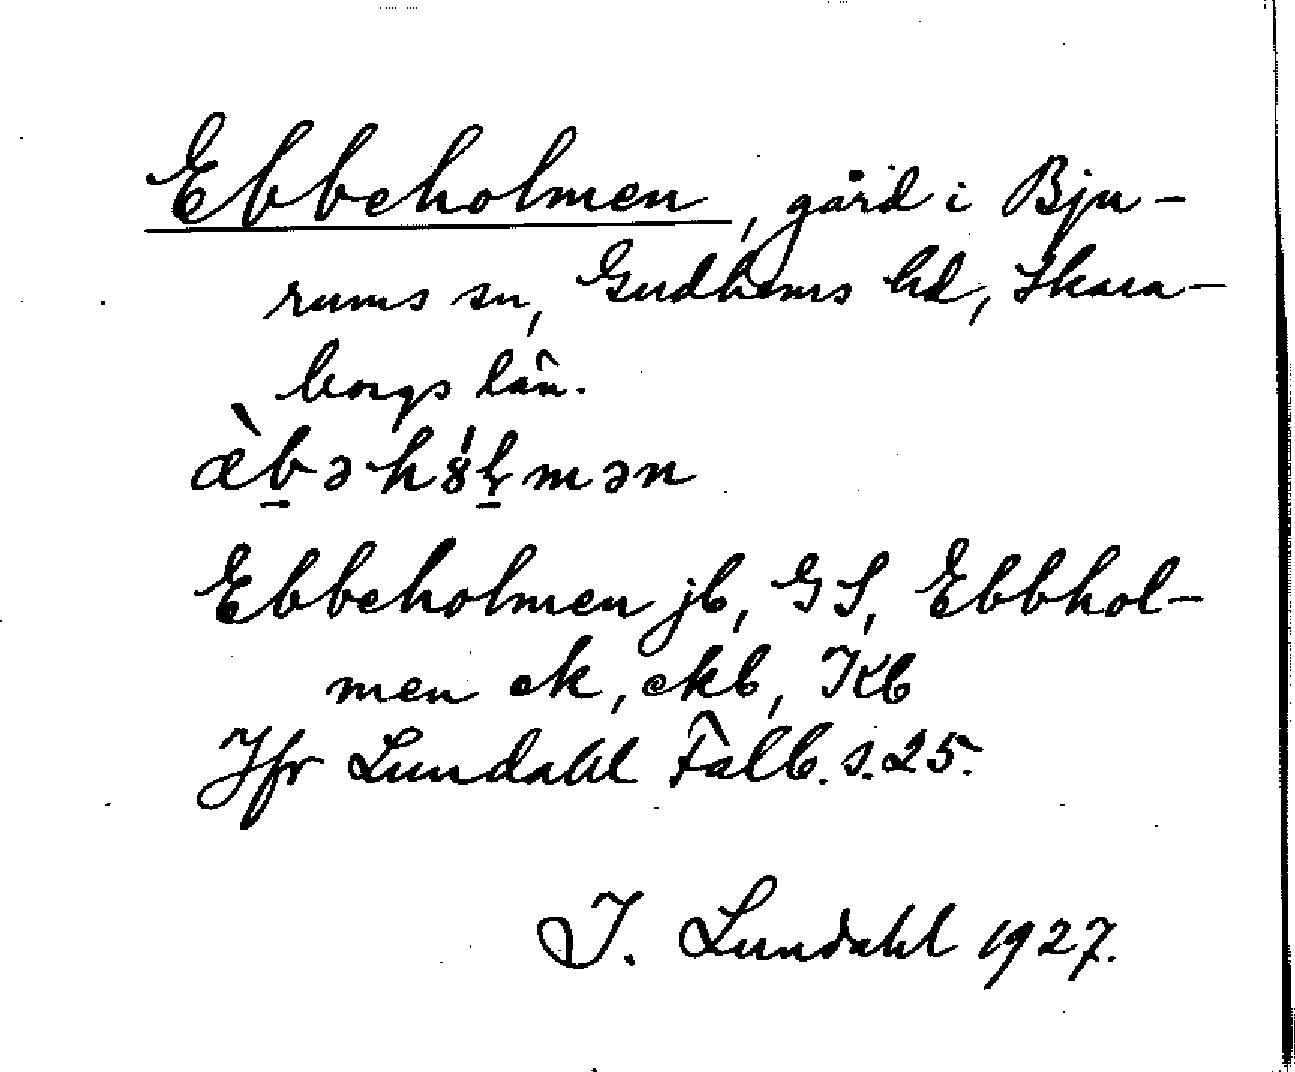 Ebbeholmen, gård i Bju-
rums sn, Gudhems hd, Skara-
borgs län.
Ebbeholmen jb, GS, Ebbhol-
men ek, ekb, Kb
Jfr Lundahl Falb. s. 25.
I. Lundahl 1927.